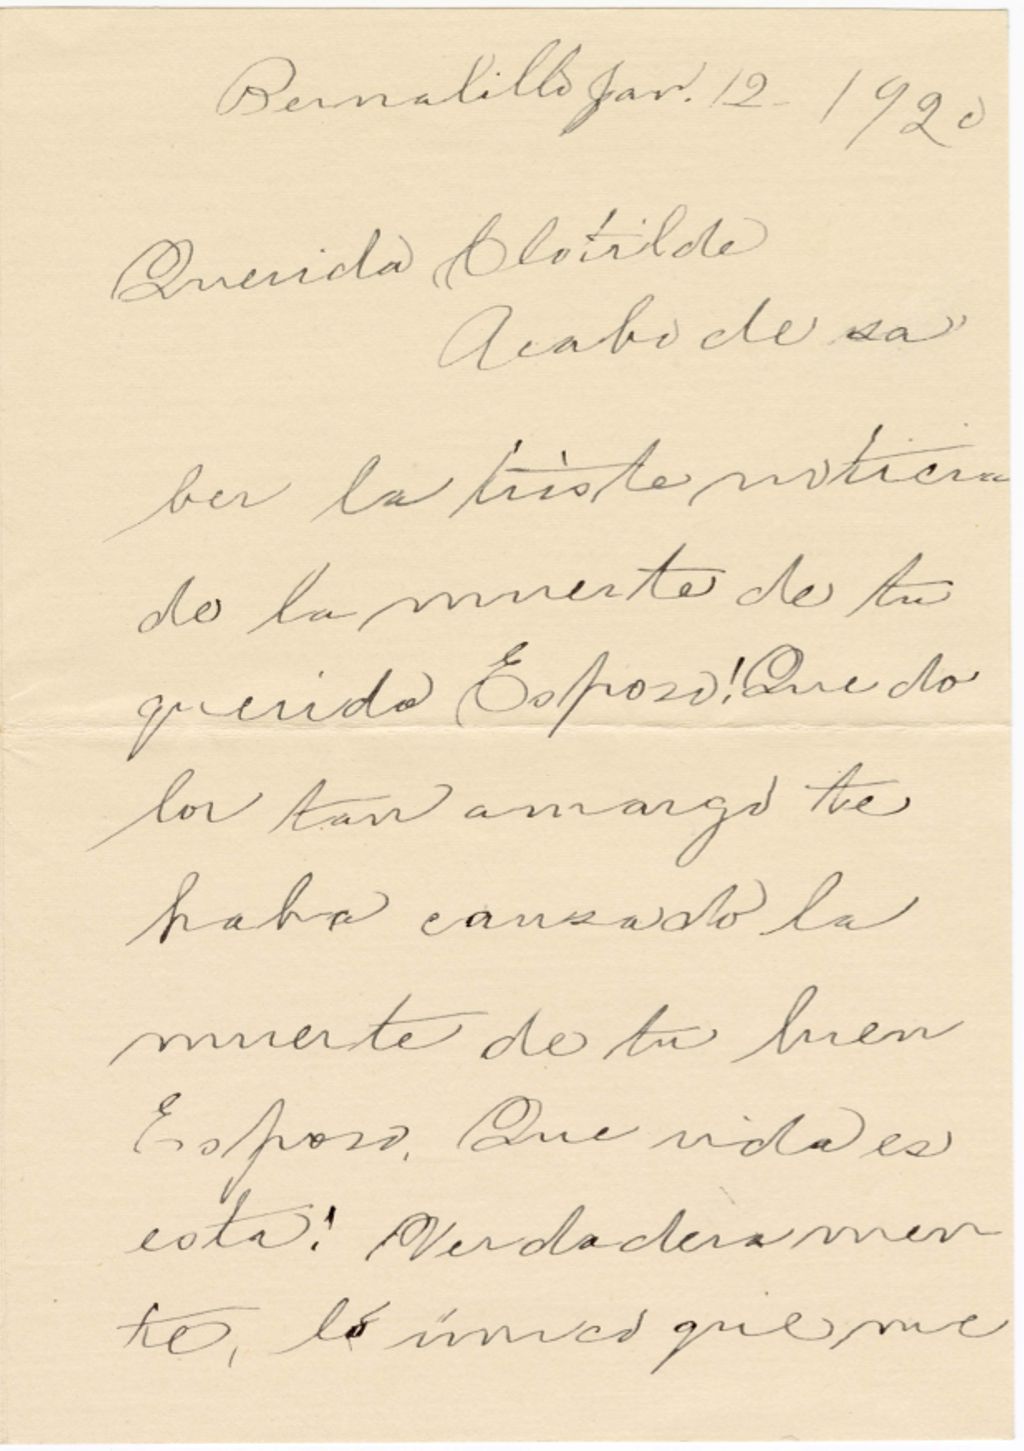 Bernalillo Jan. 12 - 1920
Querida Clotilde
Acabo de sa
ber la triste noticia
de la muerte de tu
querido Esposo! Que do
lor tan amargo te
haba causado la
muerte de tu buen
Esposo. Que vida es
esta! Verdaderamen
te, lo único que me